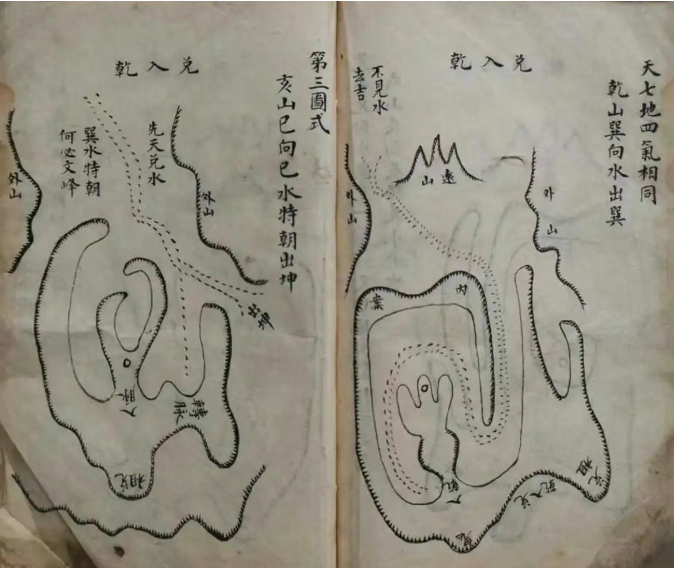 天七地四氣相同
乾山巽向水出巽
兌入乾
不見水
去吉
遠山
外山
外山
內
案
入
第三圖式
亥山巳向巳水特朝出坤
兌入乾
先天兌水
巽水特朝
何必文峰
外山
外山
出坤
入脉
轉脉
祖兌